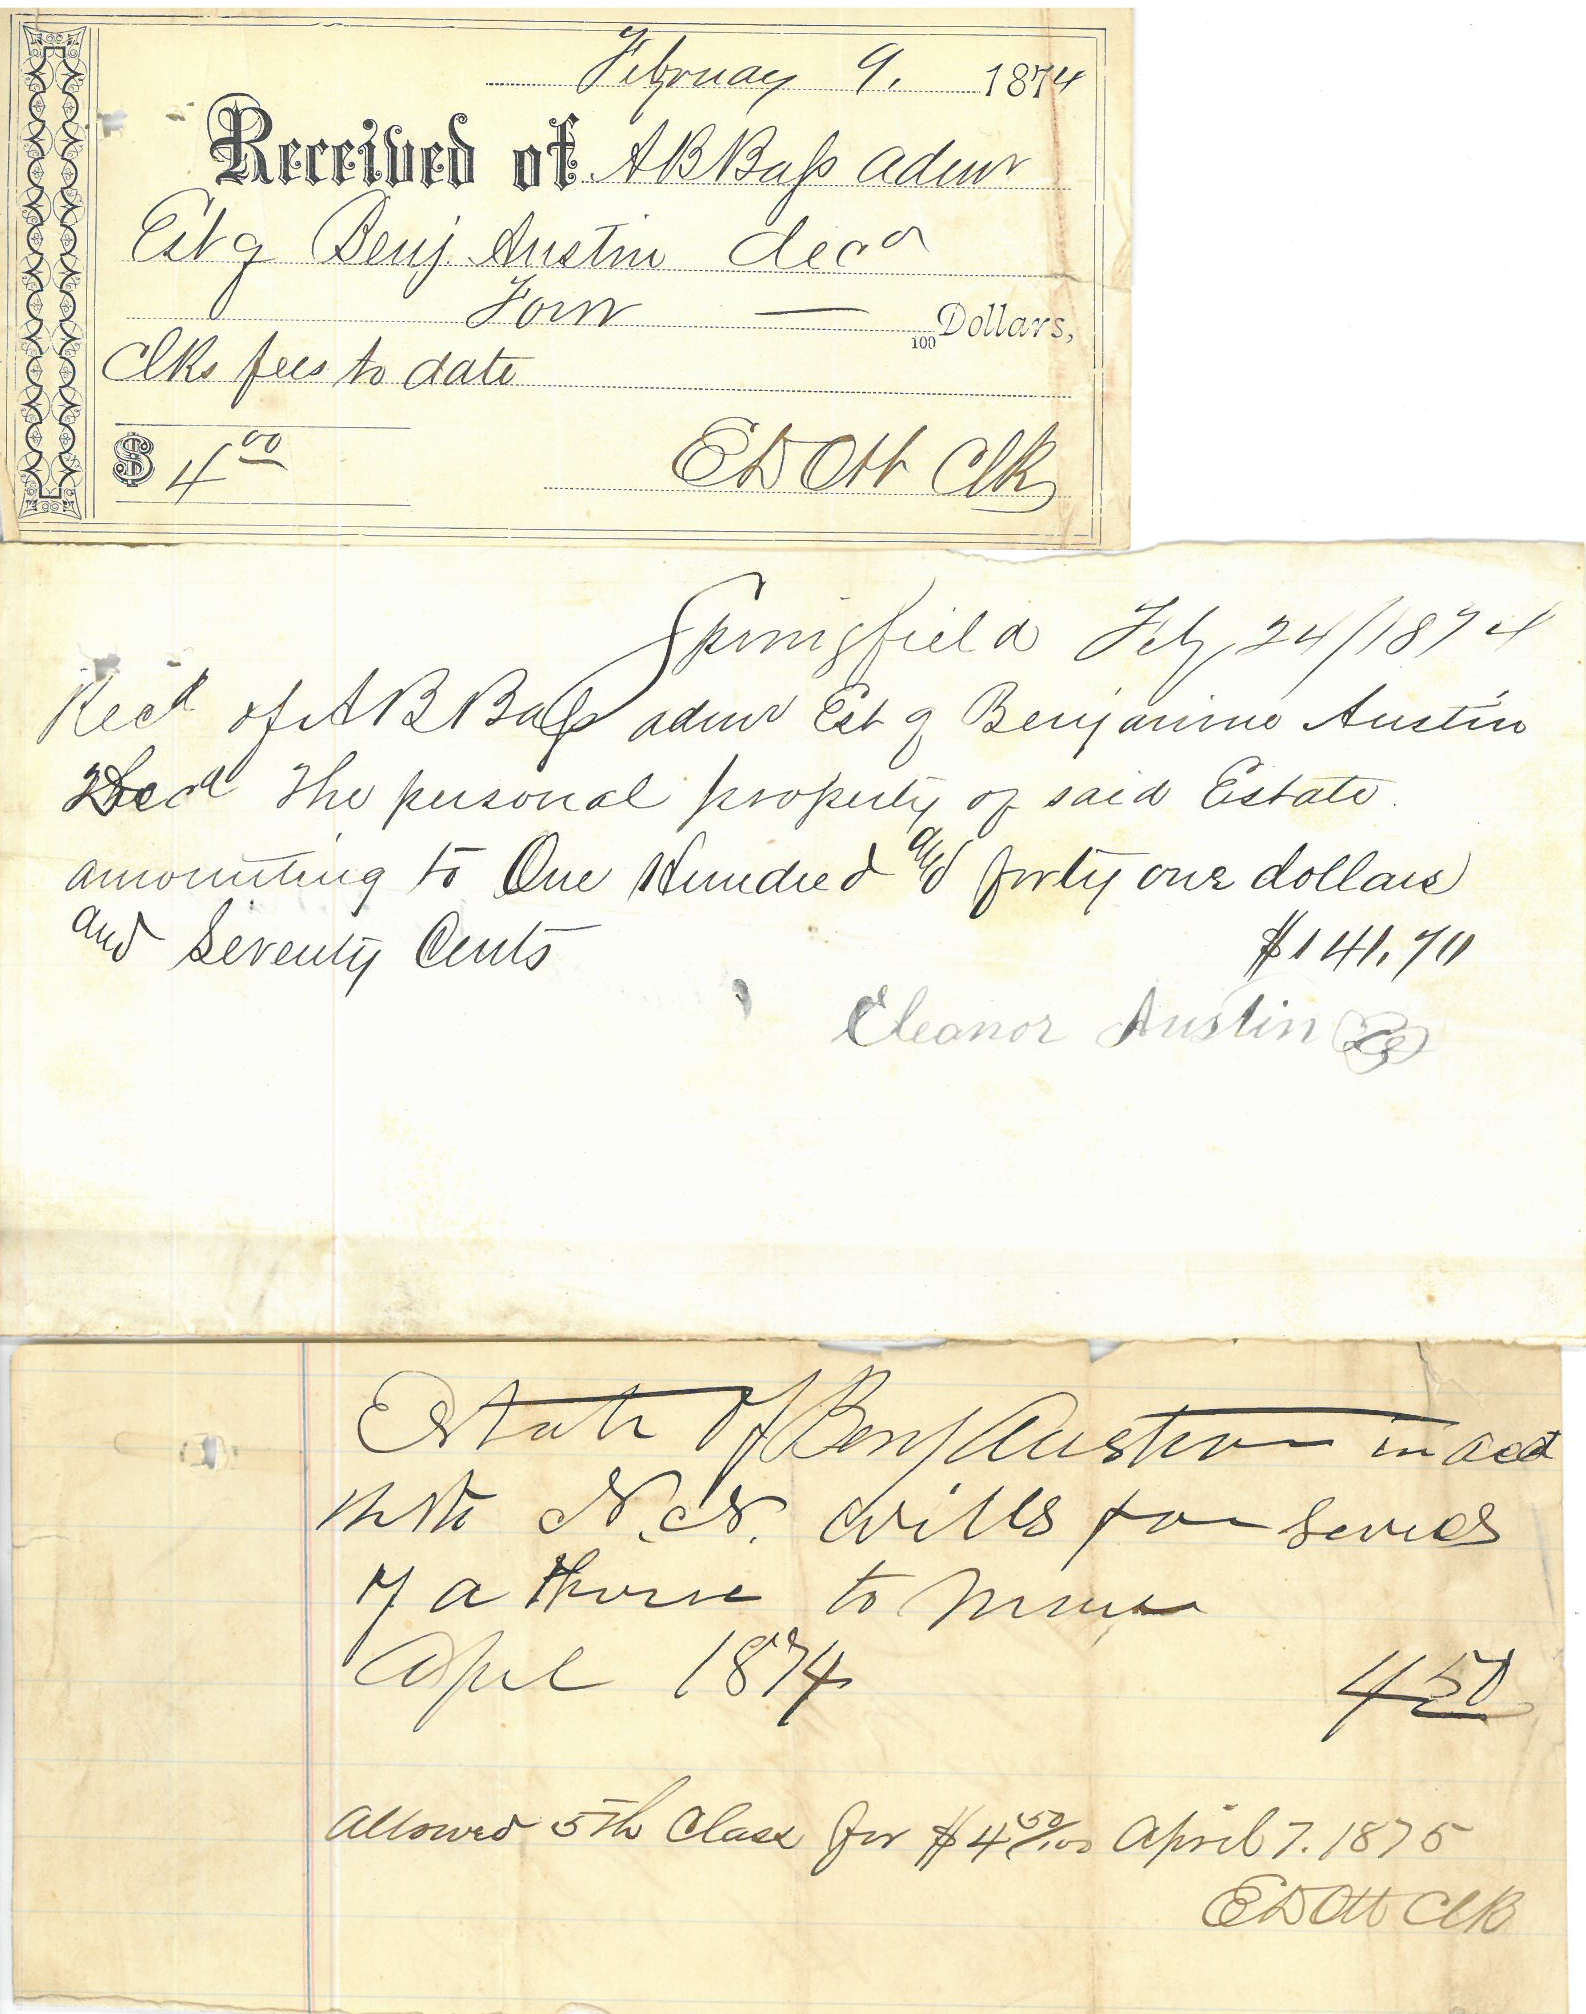 February 9. 1874
Received of A B Bass admr
Est of Benj. Austin decd
Four — 100 Dollars,
Clks fees to date
$ 4 00
E D Ott Clk
Springfield Feby 24/1874
Recd of A B Bass admr Est of Benjamine Austin
Decd The personal property of said Estate
amounting to One Hundred and forty one dollars
and Seventy Cents
$141.70
Eleanor Austin
Estate of Benj Austin in act
with N. N. Wills for
of a Horse to
April 1874 4 50
Allowed 5th Class for $4 50/100 April 7. 1875
E D Ott Clk